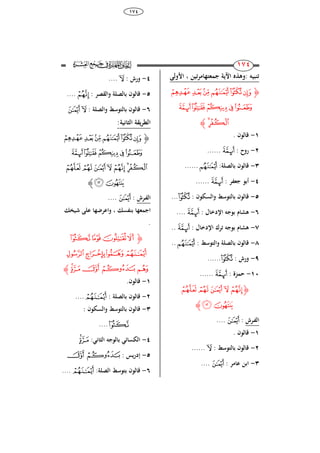 ١٧٤
تنبيه :وهذه الآية جمعتهامرتين ، الأولي
﴿ وَإِن نَّكَثُوٓا۟ أَيْمَـٰنَهُم مِّنۢ بَعْدِ عَهْدِهِمْ
وَطَعَنُوا۟ فِى دِينِكُمْ فَقَـٰتِلُوٓا۟ أَئِمَّةَ
ٱلْكُفْرِ ﴾
١- قالون .
٢- روح : أَئِمَّةَ ......
٣- قالون بالصلة: أَيْمَـٰنَهُم ......
٤- أبو جعفر : أَئِمَّةَ ......
٥- قالون بالتوسط والسكون : نَّكَثُوٓا۟...
٦- هشام بوجه الإدخال : أَئِمَّةَ ....
٧- هشام بوجه ترك الإدخال : أَئِمَّةَ ..
٨- قالون بالصلة والتوسط : أَيْمَـٰنَهُم ..
٩- ورش : نَّكَثُوٓا۟......
١٠- حمزة : أَئِمَّةَ ......
﴿ إِنَّهُمْ لَآ أَيْمَـٰنَ لَهُمْ لَعَلَّهُمْ
يَنتَهُونَ ﴾
الفرش : أَيْمَـٰنَ ....
١- قالون .
٢- قالون بالتوسط : لَآ ......
٣- ابن عامر : أَيْمَـٰنَ ....
٤- ورش : لَآ ....
٥- قالون بالصلة والقصر : إِنَّهُمْ ....
٦- قالون بالتوسط والصلة : لَآ أَيْمَـٰنَ
الطريقة الثانية:
﴿ وَإِن نَّكَثُوٓا۟ أَيْمَـٰنَهُم مِّنۢ بَعْدِ عَهْدِهِمْ
وَطَعَنُوا۟ فِى دِينِكُمْ فَقَـٰتِلُوٓا۟ أَئِمَّةَ
ٱلْكُفْرِ إِنَّهُمْ لَآ أَيْمَـٰنَ لَهُمْ لَعَلَّهُمْ
يَنتَهُونَ ﴾
الفرش : أَيْمَـٰنَ ....
اجمعها بنفسك ، واعرضها على شيخك
.
﴿ أَلَا تُقَـٰتِلُونَ قَوْمًا نَّكَثُوٓا۟
أَيْمَـٰنَهُمْ وَهَمُّوا۟ بِإِخْرَاجِ ٱلرَّسُولِ
وَهُم بَدَءُوكُمْ أَوَّلَ مَرَّةٍ ﴾
١- قالون.
٢- قالون بالصلة : أَيْمَـٰنَهُمْ ....
٣- قالون بالتوسط والسكون :
نَّكَثُوٓا۟ ....
٤- الكسائي بالوجه الثاني: مَرَّةٍ
٥- إدريس : بَدَءُوكُمْ أَوَّلَ
٦- قالون بتوسط الصلة: أَيْمَـٰنَهُمْ ....
١٧٤